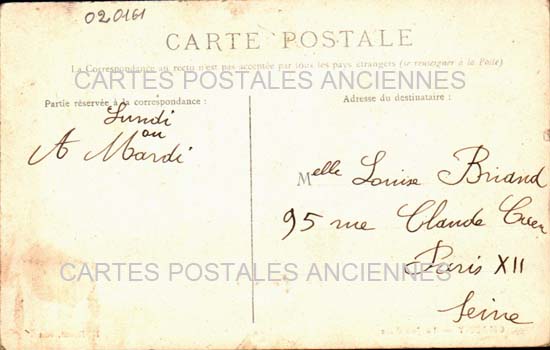 020161
CARTE POSTALE
La Correspondance au recto n'est pas acceptée par tous les pays étrangers (se renseigner à la Poste)
CARTES POSTALES ANCIENNES
Partie réservée à la correspondance :
Adresse du destinataire :
Lundi
ou
A Mardi
Melle Louise Briand
95 rue Claude
Paris XII
Seine
CARTES POSTALES ANCIENNES